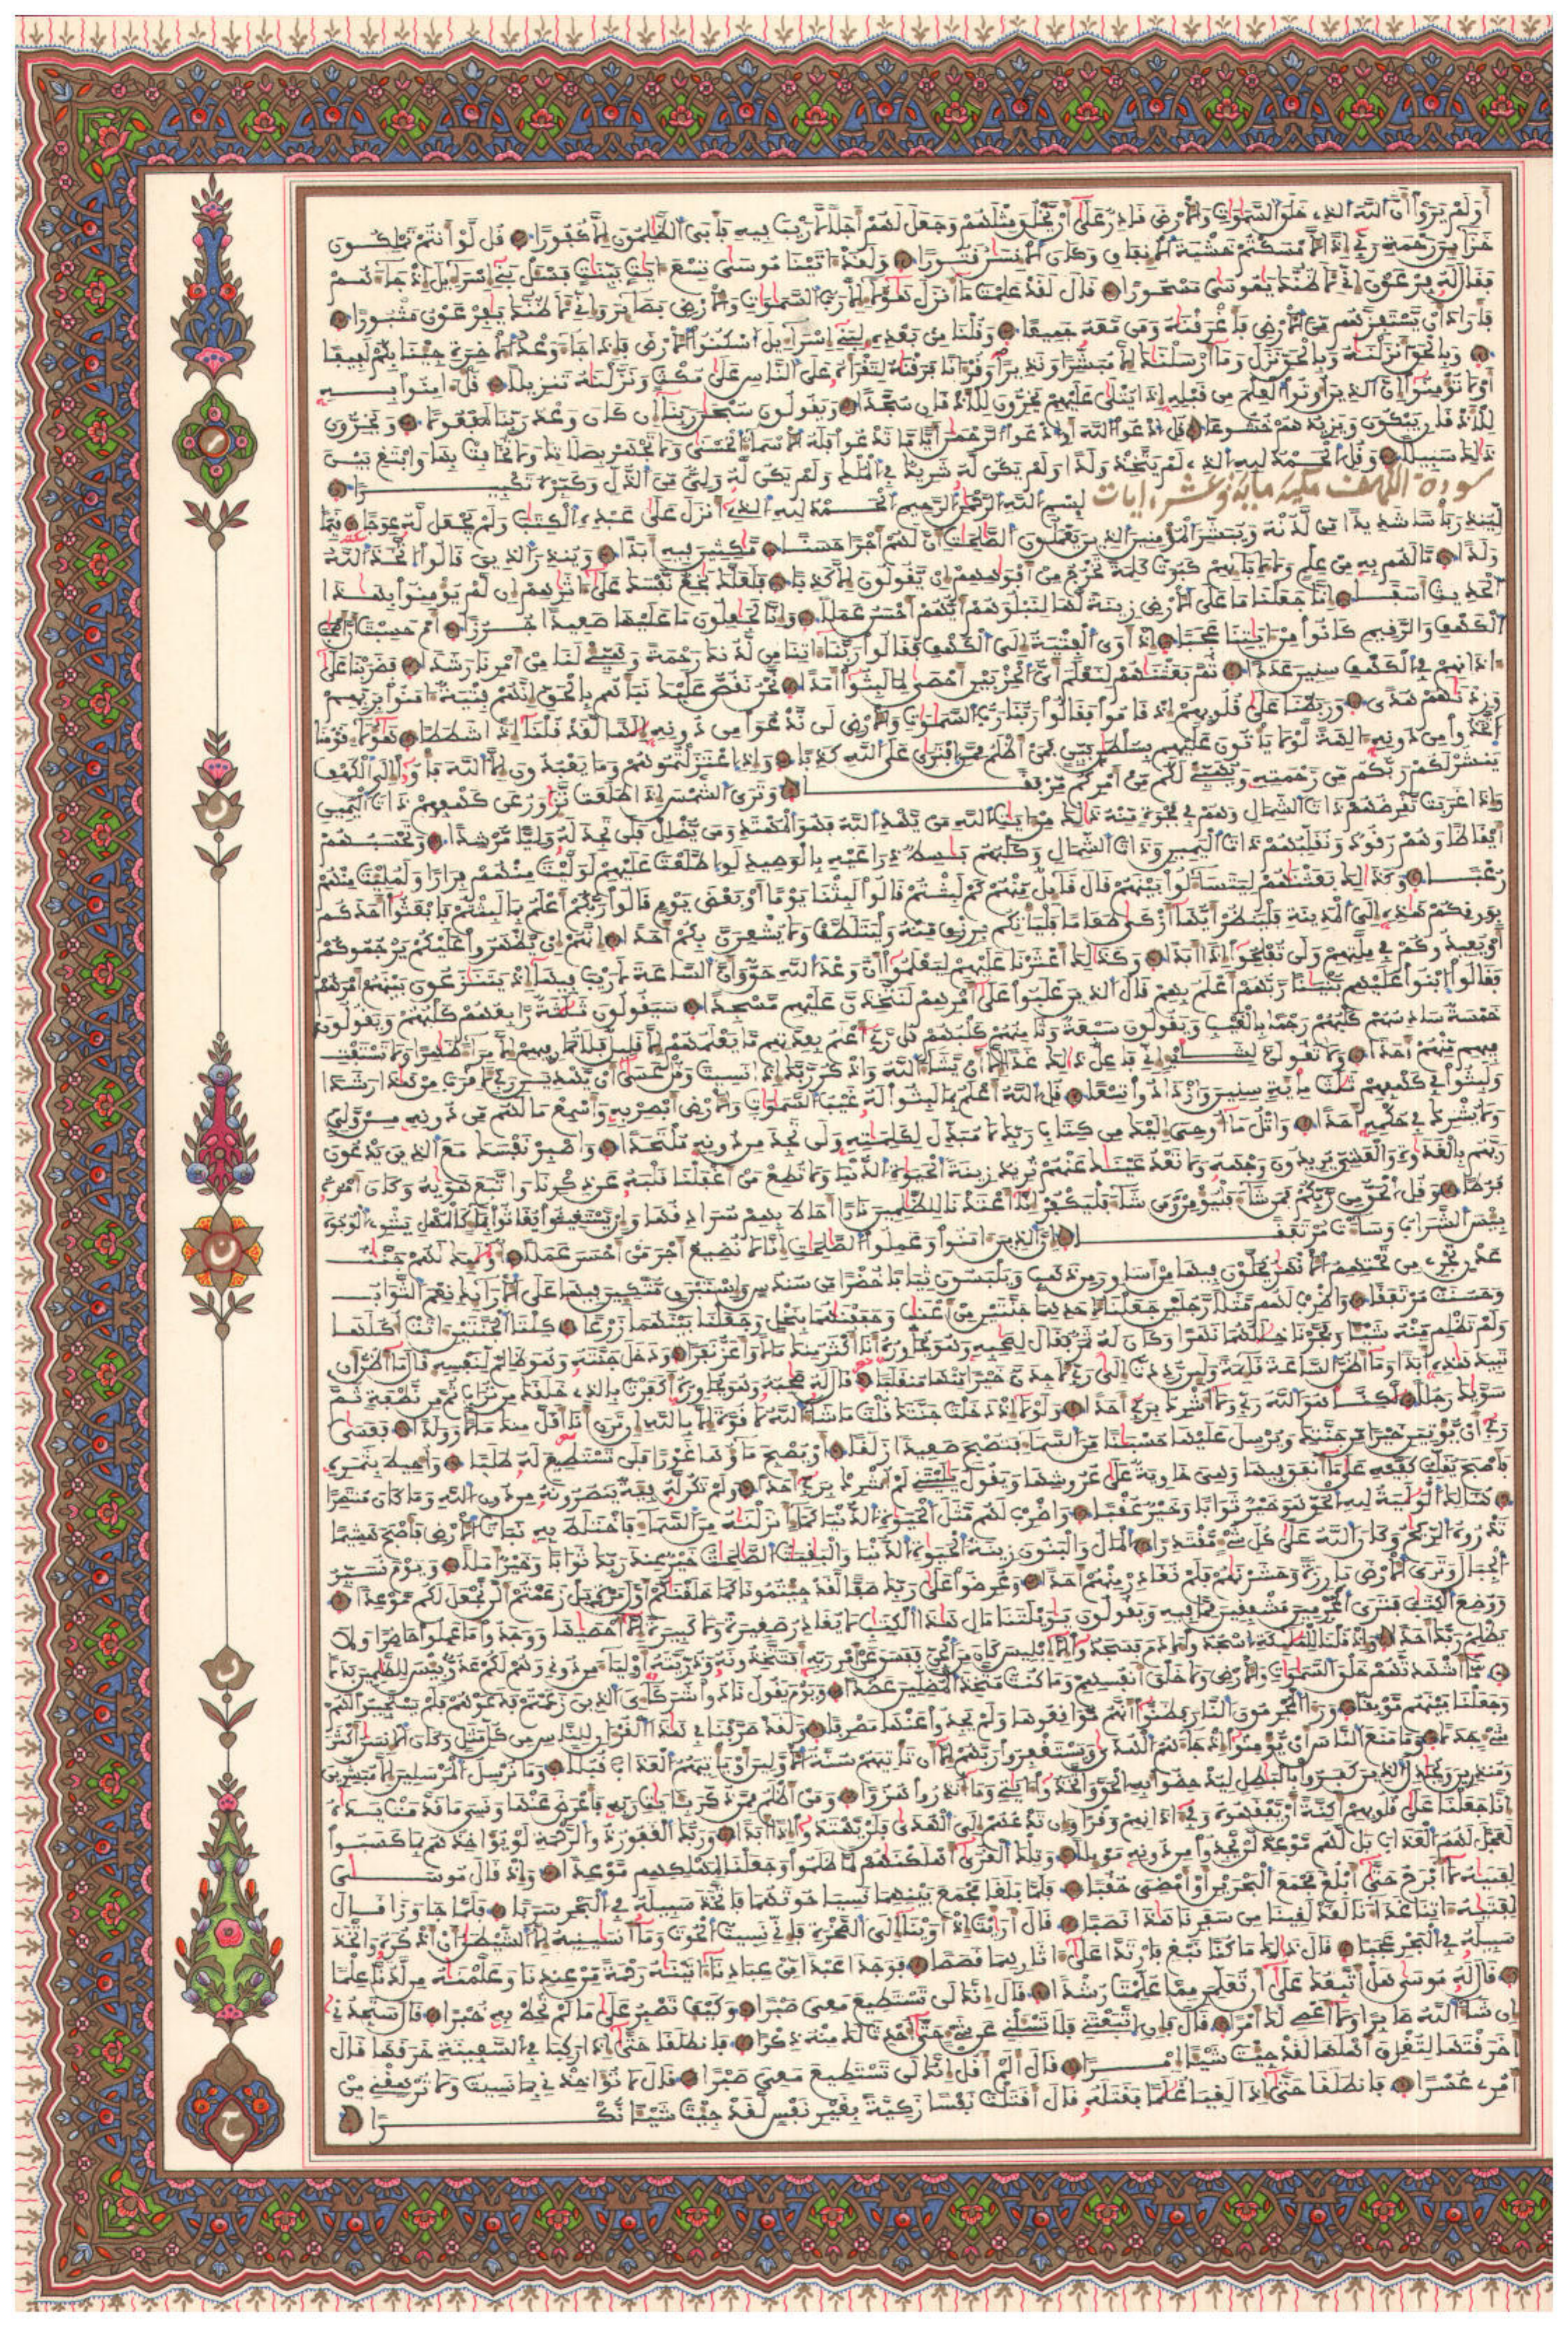 أولم يروا أن الله الذي خلق السموات والأرض قادر على أن يخلق مثلهم وجعل لهم أجلا لا ريب فيه فأبى الظلمون إلا كفورا قل لو أنتم تملكون
خزائن رحمة ربي إذا لأمسكتم خشية الإنفاق وكان الإنسن قتورا ولقد ءاتينا موسى تسع ءايت بينت فسئل بني إسرائيل إذ جاءهم
فقال له فرعون إني لأظنك يموسى مسحورا قال لقد علمت ما أنزل هؤلاء إلا رب السموات والأرض بصائر وإني لأظنك يفرعون مثبورا
فأراد أن يستفزهم من الأرض فأغرقنه ومن معه جميعا وقلنا من بعده لبني إسرائيل اسكنوا الأرض فإذا جاء وعد الأخرة جئنا بكم لفيفا
وبالحق أنزلنه وبالحق نزل وما أرسلنك إلا مبشرا ونذيرا وقرءانا فرقنه لتقرأه على الناس على مكث ونزلنه تنزيلا قل ءامنوا به
أو لا تؤمنوا إن الذين أوتوا العلم من قبله إذا يتلى عليهم يخرون للأذقان سجدا ويقولون سبحن ربنا إن كان وعد ربنا لمفعولا ويخرون
للأذقان يبكون ويزيدهم خشوعا قل ادعوا الله أو ادعوا الرحمن أيا ما تدعوا فله الأسماء الحسنى ولا تجهر بصلاتك ولا تخافت بها وابتغ بين
ذلك سبيلا وقل الحمد لله الذي لم يتخذ ولدا ولم يكن له شريك في الملك ولم يكن له ولي من الذل وكبره تكبيرا
سورة الكهف مكية مائة وعشر ءايات
بسم الله الرحمن الرحيم الحمد لله الذي أنزل على عبده الكتب ولم يجعل له عوجا قيما
لينذر بأسا شديدا من لدنه ويبشر المؤمنين الذين يعملون الصلحت أن لهم أجرا حسنا مكثين فيه أبدا وينذر الذين قالوا اتخذ الله
ولدا ما لهم به من علم ولا لأبائهم كبرت كلمة تخرج من أفوههم إن يقولون إلا كذبا فلعلك بخع نفسك على ءاثرهم إن لم يؤمنوا بهذا
الحديث أسفا إنا جعلنا ما على الأرض زينة لها لنبلوهم أيهم أحسن عملا وإنا لجعلون ما عليها صعيدا جرزا أم حسبت أن أصحب
الكهف والرقيم كانوا من ءايتنا عجبا إذ أوى الفتية إلى الكهف فقالوا ربنا ءاتنا من لدنك رحمة وهيئ لنا من أمرنا رشدا فضربنا على
ءاذانهم في الكهف سنين عددا ثم بعثنهم لنعلم أي الحزبين أحصى لما لبثوا أمدا نحن نقص عليك نبأهم بالحق إنهم فتية ءامنوا بربهم
وزدنهم هدى وربطنا على قلوبهم إذ قاموا فقالوا ربنا رب السموات والأرض لن ندعوا من دونه إلها لقد قلنا إذا شططا هؤلاء قومنا
اتخذوا من دونه ءالهة لولا يأتون عليهم بسلطن بين فمن أظلم ممن افترى على الله كذبا وإذ اعتزلتموهم وما يعبدون إلا الله فأوا إلى الكهف
ينشر لكم ربكم من رحمته ويهيئ لكم من أمركم مرفقا وترى الشمس إذا طلعت تزور عن كهفهم ذات اليمين
وإذا غربت تقرضهم ذات الشمال وهم في فجوة منه ذلك من ءايت الله من يهد الله فهو المهتد ومن يضلل فلن تجد له وليا مرشدا وتحسبهم
أيقاظا وهم رقود ونقلبهم ذات اليمين وذات الشمال وكلبهم بسط ذراعيه بالوصيد لو اطلعت عليهم لوليت منهم فرارا ولملئت منهم
رعبا وكذلك بعثنهم ليتساءلوا بينهم قال قائل منهم كم لبثتم قالوا لبثنا يوما أو بعض يوم قالوا ربكم أعلم بما لبثتم فابعثوا أحدكم
بورقكم هذه إلى المدينة فلينظر أيها أزكى طعاما فليأتكم برزق منه وليتلطف ولا يشعرن بكم أحدا إنهم إن يظهروا عليكم يرجموكم
أو يعيدوكم في ملتهم ولن تفلحوا إذا أبدا وكذلك أعثرنا عليهم ليعلموا أن وعد الله حق وأن الساعة لا ريب فيها إذ يتنزعون بينهم أمرهم
فقالوا ابنوا عليهم بنينا ربهم أعلم بهم قال الذين غلبوا على أمرهم لنتخذن عليهم مسجدا سيقولون ثلثة رابعهم كلبهم ويقولون
خمسة سادسهم كلبهم رجما بالغيب ويقولون سبعة وثامنهم كلبهم قل ربي أعلم بعدتهم ما يعلمهم إلا قليل فلا تمار فيهم إلا مراء ظهرا ولا تستفت
فيهم منهم أحدا ولا تقولن لشايء إني فاعل ذلك غدا إلا أن يشاء الله واذكر ربك إذا نسيت وقل عسى أن يهدين ربي لأقرب من هذا رشدا
ولبثوا في كهفهم ثلث مائة سنين وازدادوا تسعا قل الله أعلم بما لبثوا له غيب السموات والأرض أبصر به وأسمع ما لهم من دونه من ولي
ولا يشرك في حكمه أحدا واتل ما أوحي إليك من كتاب ربك لا مبدل لكلمته ولن تجد من دونه ملتحدا واصبر نفسك مع الذين يدعون
ربهم بالغدوة والعشي يريدون وجهه ولا تعد عينك عنهم تريد زينة الحيوة الدنيا ولا تطع من أغفلنا قلبه عن ذكرنا واتبع هويه وكان أمره
فرطا وقل الحق من ربكم فمن شاء فليؤمن ومن شاء فليكفر إنا أعتدنا للظلمين نارا أحاط بهم سرادقها وإن يستغيثوا يغاثوا بماء كالمهل يشوي الوجوه
بئس الشراب وساءت مرتفقا إن الذين ءامنوا وعملوا الصلحت إنا لا نضيع أجر من أحسن عملا أولئك لهم جنت
عدن تجري من تحتهم الأنهر يحلون فيها من أساور من ذهب ويلبسون ثيابا خضرا من سندس وإستبرق متكئين فيها على الأرائك نعم الثواب
وحسنت مرتفقا واضرب لهم مثلا رجلين جعلنا لأحدهما جنتين من أعنب وحففنهما بنخل وجعلنا بينهما زرعا كلتا الجنتين ءاتت أكلها
ولم تظلم منه شيئا وفجرنا خللهما نهرا وكان له ثمر فقال لصحبه وهو يحاوره أنا أكثر منك مالا وأعز نفرا ودخل جنته وهو ظالم لنفسه قال ما أظن أن
تبيد هذه أبدا وما أظن الساعة قائمة ولئن رددت إلى ربي لأجدن خيرا منهما منقلبا قال له صحبه وهو يحاوره أكفرت بالذي خلقك من تراب ثم من نطفة ثم
سويك رجلا لكنا هو الله ربي ولا أشرك بربي أحدا ولولا إذ دخلت جنتك قلت ما شاء الله لا قوة إلا بالله إن ترن أنا أقل منك مالا وولدا فعسى
ربي أن يؤتين خيرا من جنتك ويرسل عليها حسبنا من السماء فتصبح صعيدا زلقا أو يصبح ماؤها غورا فلن تستطيع له طلبا وأحيط بثمره
فأصبح يقلب كفيه على ما أنفق فيها وهي خاوية على عروشها ويقول يليتني لم أشرك بربي أحدا ولم تكن له فئة ينصرونه من دون الله وما كان منتصرا
هنالك الولية لله الحق هو خير ثوابا وخير عقبا واضرب لهم مثل الحيوة الدنيا كماء أنزلنه من السماء فاختلط به نبات الأرض فأصبح هشيما
تذروه الريح وكان الله على كل شيء مقتدرا المال والبنون زينة الحيوة الدنيا والبقيت الصلحت خير عند ربك ثوابا وخير أملا ويوم نسير
الجبال وترى الأرض بارزة وحشرنهم فلم نغادر منهم أحدا وعرضوا على ربك صفا لقد جئتمونا كما خلقنكم أول مرة بل زعمتم ألن نجعل لكم موعدا
ووضع الكتب فترى المجرمين مشفقين مما فيه ويقولون يويلتنا مال هذا الكتب لا يغادر صغيرة ولا كبيرة إلا أحصيها ووجدوا ما عملوا حاضرا ولا
يظلم ربك أحدا وإذ قلنا للملئكة اسجدوا لأدم فسجدوا إلا إبليس كان من الجن ففسق عن أمر ربه أفتتخذونه وذريته أولياء من دوني وهم لكم عدو بئس للظلمين بدلا
ما أشهدتهم خلق السموات والأرض ولا خلق أنفسهم وما كنت متخذ المضلين عضدا ويوم يقول نادوا شركاءي الذين زعمتم فدعوهم فلم يستجيبوا لهم
وجعلنا بينهم موبقا ورءا المجرمون النار فظنوا أنهم مواقعوها ولم يجدوا عنها مصرفا ولقد صرفنا في هذا القرءان للناس من كل مثل وكان الإنسن أكثر
شيء جدلا وما منع الناس أن يؤمنوا إذ جاءهم الهدى ويستغفروا ربهم إلا أن تأتيهم سنة الأولين أو يأتيهم العذاب قبلا وما نرسل المرسلين إلا مبشرين
ومنذرين ويجدل الذين كفروا بالبطل ليدحضوا به الحق واتخذوا ءايتي وما أنذروا هزؤا ومن أظلم ممن ذكر بئايت ربه فأعرض عنها ونسي ما قدمت يداه
إنا جعلنا على قلوبهم أكنة أن يفقهوه وفي ءاذانهم وقرا وإن تدعهم إلى الهدى فلن يهتدوا إذا أبدا وربك الغفور ذو الرحمة لو يؤاخذهم بما كسبوا
لعجل لهم العذاب بل لهم موعد لن يجدوا من دونه موئلا وتلك القرى أهلكنهم لما ظلموا وجعلنا لمهلكهم موعدا وإذ قال موسى
لفتيه لا أبرح حتى أبلغ مجمع البحرين أو أمضي حقبا فلما بلغا مجمع بينهما نسيا حوتهما فاتخذ سبيله في البحر سربا فلما جاوزا قال
لفتيه ءاتنا غداءنا لقد لقينا من سفرنا هذا نصبا قال أرأيت إذ أوينا إلى الصخرة فإني نسيت الحوت وما أنسينيه إلا الشيطن أن أذكره واتخذ
سبيله في البحر عجبا قال ذلك ما كنا نبغ فارتدا على ءاثارهما قصصا فوجدا عبدا من عبادنا ءاتينه رحمة من عندنا وعلمنه من لدنا علما
قال له موسى هل أتبعك على أن تعلمن مما علمت رشدا قال إنك لن تستطيع معي صبرا وكيف تصبر على ما لم تحط به خبرا قال ستجدني
إن شاء الله صابرا ولا أعصي لك أمرا قال فإن اتبعتني فلا تسئلني عن شيء حتى أحدث لك منه ذكرا فانطلقا حتى إذا ركبا في السفينة خرقها قال
أخرقتها لتغرق أهلها لقد جئت شيئا إمرا قال ألم أقل إنك لن تستطيع معي صبرا قال لا تؤاخذني بما نسيت ولا ترهقني من
أمري عسرا فانطلقا حتى إذا لقيا غلما فقتله قال أقتلت نفسا زكية بغير نفس لقد جئت شيئا نكرا